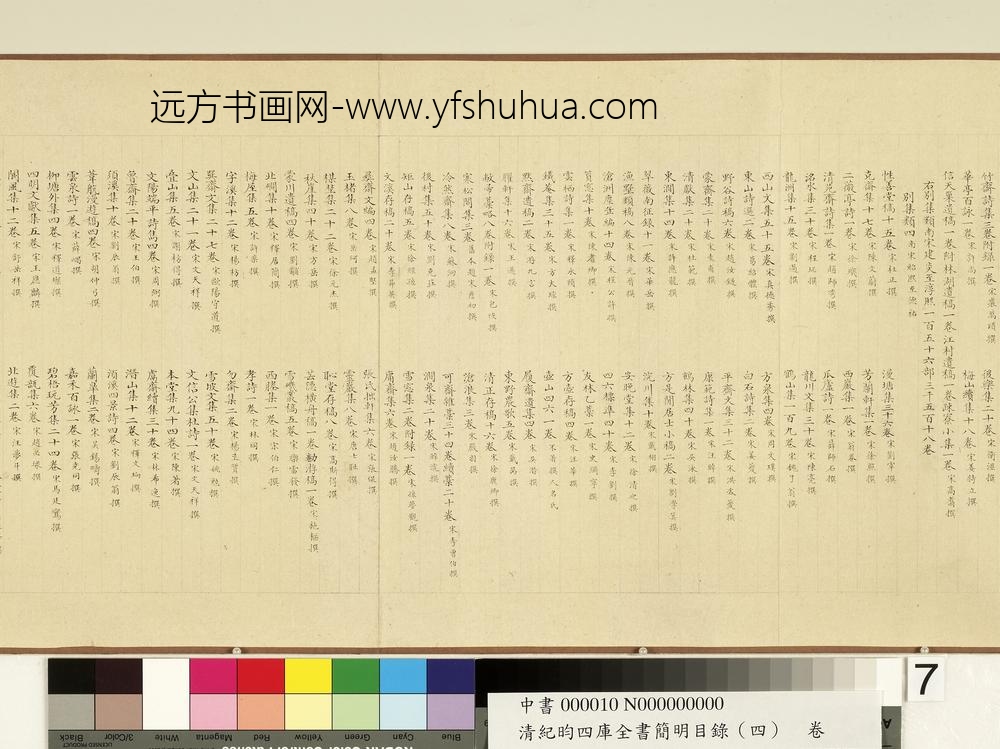 远方书画网-www.yfshuhua.com
竹齋詩集三卷附錄一卷宋裘萬頃撰 後樂集二十卷宋衛涇撰
華亭百詠一卷宋許尚撰 梅山續集十八卷宋姜特立撰
信天巢遺稿一卷附林湖遺稿一卷江村遺稿一卷疎寮小集一卷宋高翥撰
右別集類南宋建炎至淳熙一百五十六部三千五百十八卷
別集類四南宋紹熙至德祐
性善堂稿十五卷宋度正撰 漫塘集三十六卷宋劉宰撰
克齋集十七卷宋陳文蔚撰 芳蘭軒集一卷宋徐照撰
二薇亭詩一卷宋徐璣撰 西巖集一卷宋翁卷撰
清苑齋詩集一卷宋趙師秀撰 瓜廬詩一卷宋薛師石撰
洺水集三十卷宋程珌撰 龍川文集三十卷宋陳亮撰
龍洲集十五卷宋劉過撰 鶴山集一百九卷宋魏了翁撰
西山文集五十五卷宋真德秀撰 方泉集四卷宋周文璞撰
東山詩選二卷宋葛紹體撰 白石詩集二卷宋姜夔撰
野谷詩稿六卷宋趙汝鐩撰 平齋文集三十二卷宋洪咨夔撰
蒙齋集二十卷宋袁甫撰 康範詩集一卷宋汪晫撰
清獻集二十卷宋杜範撰 鶴林集四十卷宋吳泳撰
東澗集十四卷宋許應龍撰 方是閒居士小稿二卷宋劉學箕撰
翠微南征錄十一卷宋華岳撰 浣川集十卷宋戴栩撰
漁墅類稿八卷宋陳元晉撰 安晚堂集十二卷宋鄭清之撰
滄洲塵缶編十四卷宋程公許撰 四六標準四十卷宋李劉撰
篔窗集十卷宋陳耆卿撰 友林乙稿一卷宋史彌寧撰
雲栖詩集一卷宋釋永頤撰 方壺存稿四卷宋汪莘撰
鐵菴集三十五卷宋方大琮撰 壺山四六一卷不著撰人名氏
默齋遺稿二卷宋游九言撰 履齋遺集四卷宋吳潛撰
臞軒集十六卷宋王邁撰 東野農歌集五卷宋戴昺撰
敝帚稿略八卷附錄一卷宋包恢撰 清正存稿六卷宋徐鹿卿撰
寒松閣集三卷舊本題宋詹初撰 滄浪集三卷宋嚴羽撰
泠然齋集八卷宋蘇泂撰 可齋雜稿三十四卷續稿二十卷宋李曾伯撰
後村集五十卷宋劉克莊撰 澗泉集二十卷宋韓淲撰
矩山存稿五卷宋徐經孫撰 雪窗集二卷附錄一卷宋孫夢觀撰
文溪存稿二十卷宋李昴英撰 庸齋集六卷宋趙汝騰撰
彝齋文編四卷宋趙孟堅撰 張氏拙軒集六卷宋張侃撰
玉楮集八卷宋岳珂撰 靈巖集八卷宋唐士恥撰
楳埜集十二卷宋徐元杰撰 恥堂存稿八卷宋高斯得撰
秋崖集四十卷宋方岳撰 芸隱橫舟稿一卷勸游稿一卷宋施樞撰
蒙川遺稿四卷宋劉黻撰 雪磯叢稿五卷宋樂雷發撰
北磵集十卷宋釋居簡撰 西塍集一卷宋宋伯仁撰
梅屋集五卷宋許棐撰 孝詩一卷宋林同撰
字溪集十二卷宋陽枋撰 勿齋集二卷宋楊至質撰
巽齋文集二十七卷宋歐陽守道撰 雪坡文集五十卷宋姚勉撰
文山集二十一卷宋文天祥撰 文信公集杜詩一卷宋文天祥撰
疊山集五卷宋謝枋得撰 本堂集九十四卷宋陳著撰
文陽端平詩雋四卷宋周弼撰 鬳齋續集三十卷宋林希逸撰
魯齋集二十卷宋王柏撰 潛山集十二卷宋釋文珦撰
須溪集十卷宋劉辰翁撰 須溪四景詩四卷宋劉辰翁撰
葦航漫遊稿四卷宋胡仲弓撰 蘭臯集二卷宋吳錫疇撰
雲泉詩一卷宋薛嵎撰 嘉禾百詠一卷宋張堯同撰
柳塘外集四卷宋釋道璨撰 碧梧玩芳集二十四卷宋馬廷鸞撰
四明文獻集五卷宋王應麟撰 覆瓿集六卷宋趙必撰
閬風集十二卷宋舒岳祥撰 北遊集二卷宋汪夢斗撰
7
Black 3/Color White Magenta Red Yellow Green Cyan Blue
中書 000010 N000000000
清紀昀四庫全書簡明目錄（四） 卷